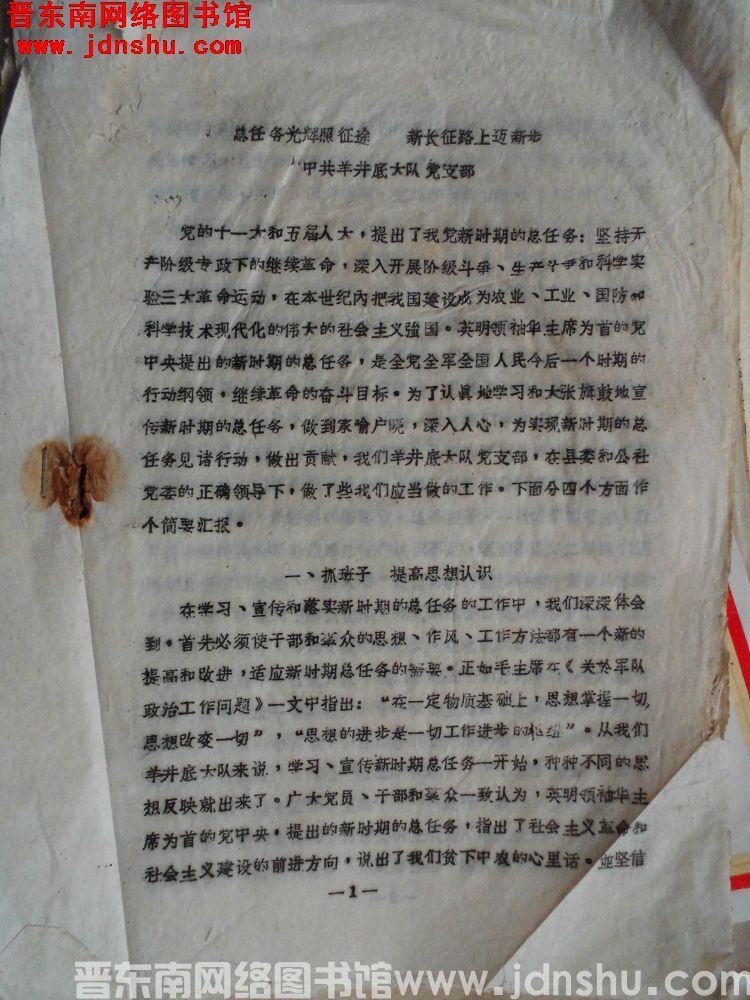 晋东南网络图书馆
www.jdnshu.com
总任务光辉照征途 新长征路上迈新步
中共羊井底大队党支部
党的十一大和五届人大，提出了我党新时期的总任务：坚持无
产阶级专政下的继续革命，深入开展阶级斗争、生产斗争和科学实
验三大革命运动，在本世纪内把我国建设成为农业、工业、国防和
科学技术现代化的伟大的社会主义强国。英明领袖华主席为首的党
中央提出的新时期的总任务，是全党全军全国人民今后一个时期的
行动纲领，继续革命的奋斗目标。为了认真地学习和大张旗鼓地宣
传新时期的总任务，做到家喻户晓，深入人心，为实现新时期的总
任务见诸行动，做出贡献，我们羊井底大队党支部，在县委和公社
党委的正确领导下，做了些我们应当做的工作。下面分四个方面作
个简要汇报。
一、抓班子 提高思想认识
在学习、宣传和落实新时期的总任务的工作中，我们深深体会
到。首先必须使干部和群众的思想、作风、工作方法都有一个新的
提高和改进，适应新时期总任务的需要。正如毛主席在《关於军队
政治工作问题》一文中指出：“在一定物质基础上，思想掌握一切，
思想改变一切”，“思想的进步是一切工作进步的枢纽”。从我们
羊井底大队来说，学习、宣传新时期总任务一开始，种种不同的思
想反映就出来了。广大党员、干部和群众一致认为，英明领袖华主
席为首的党中央，提出的新时期的总任务，指出了社会主义革命和
社会主义建设的前进方向，说出了我们贫下中农的心里话。並坚信
—1—
晋东南网络图书馆www.jdnshu.com